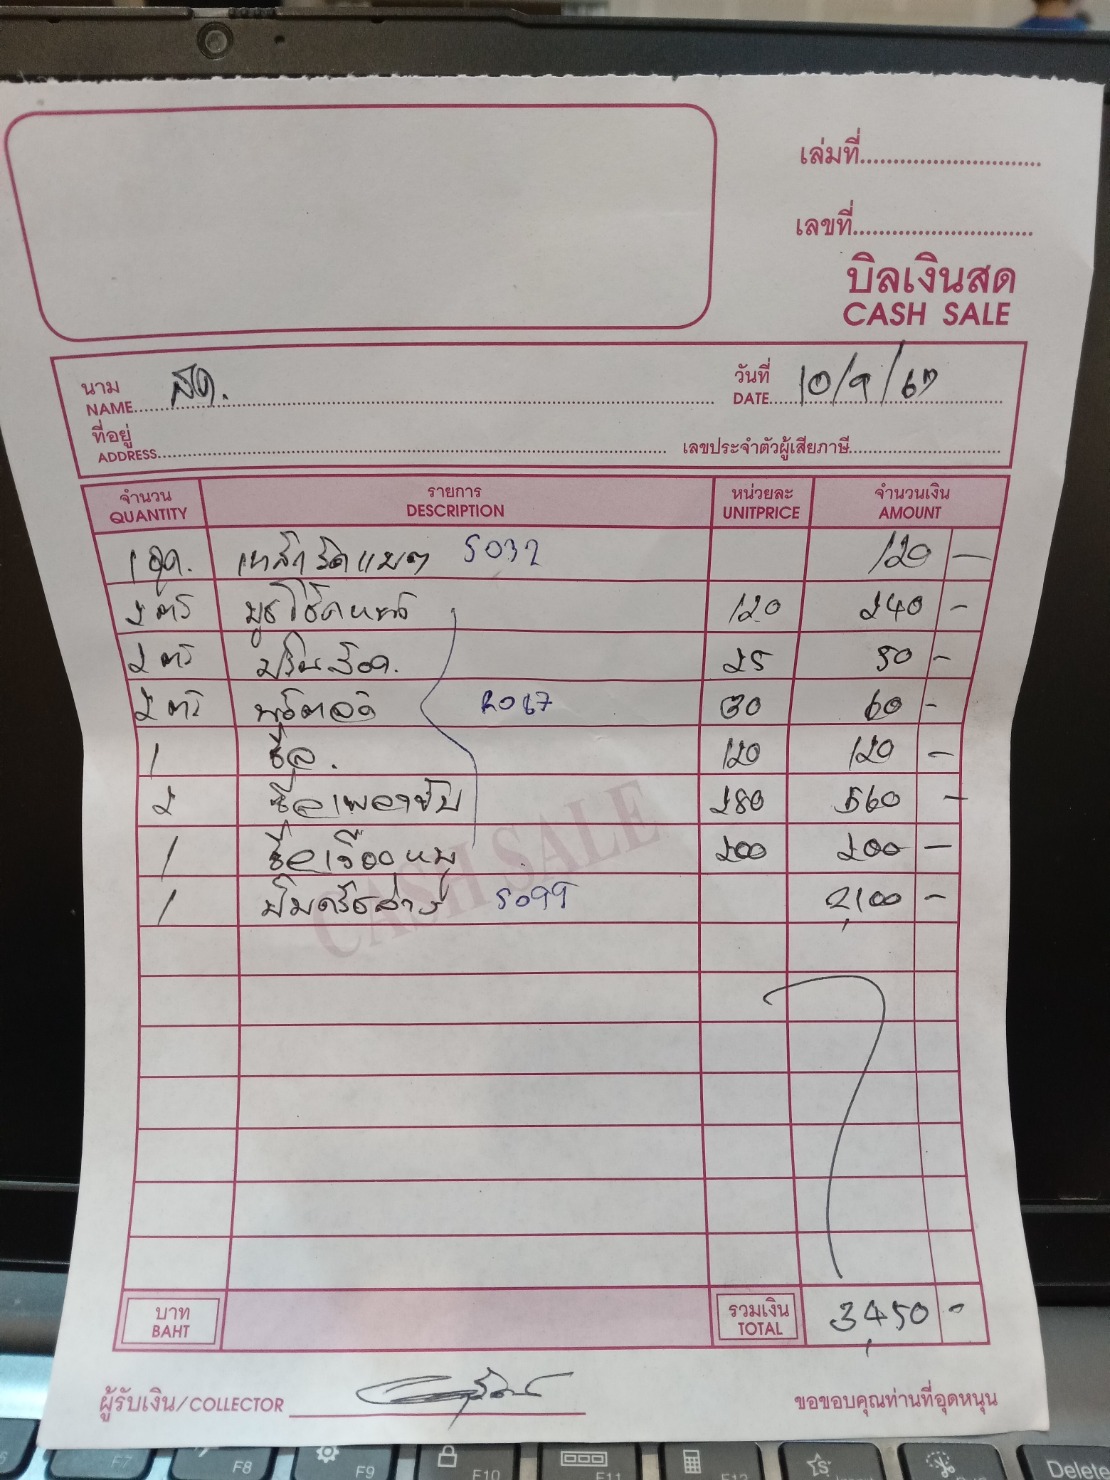 เล่มที่
เลขที่
บิลเงินสด
CASH SALE
นาม
NAME สด.
วันที่
DATE 10/9/67
ที่อยู่
ADDRESS
เลขประจำตัวผู้เสียภาษี
จำนวน รายการ หน่วยละ จำนวนเงิน
QUANTITY DESCRIPTION UNITPRICE AMOUNT
1 ชุด. เหล็กรัดแบต S032 120 -
2 ตัว บูชโช๊คหน้า 120 240 -
2 ตัว 25 50 -
2 ตัว R067 30 60 -
1 ซีล. 120 120 -
2 ซีลเพลาขับ 280 560 -
1 ซีลเฟืองหมู 200 200 -
1 ปั๊มครัชล่าง S099 2,100 -
CASH SALE
บาท
BAHT
รวมเงิน
TOTAL 3,450 -
ผู้รับเงิน/COLLECTOR
ขอขอบคุณท่านที่อุดหนุน
F7
F8
F9
F10
F11
F12
Delete